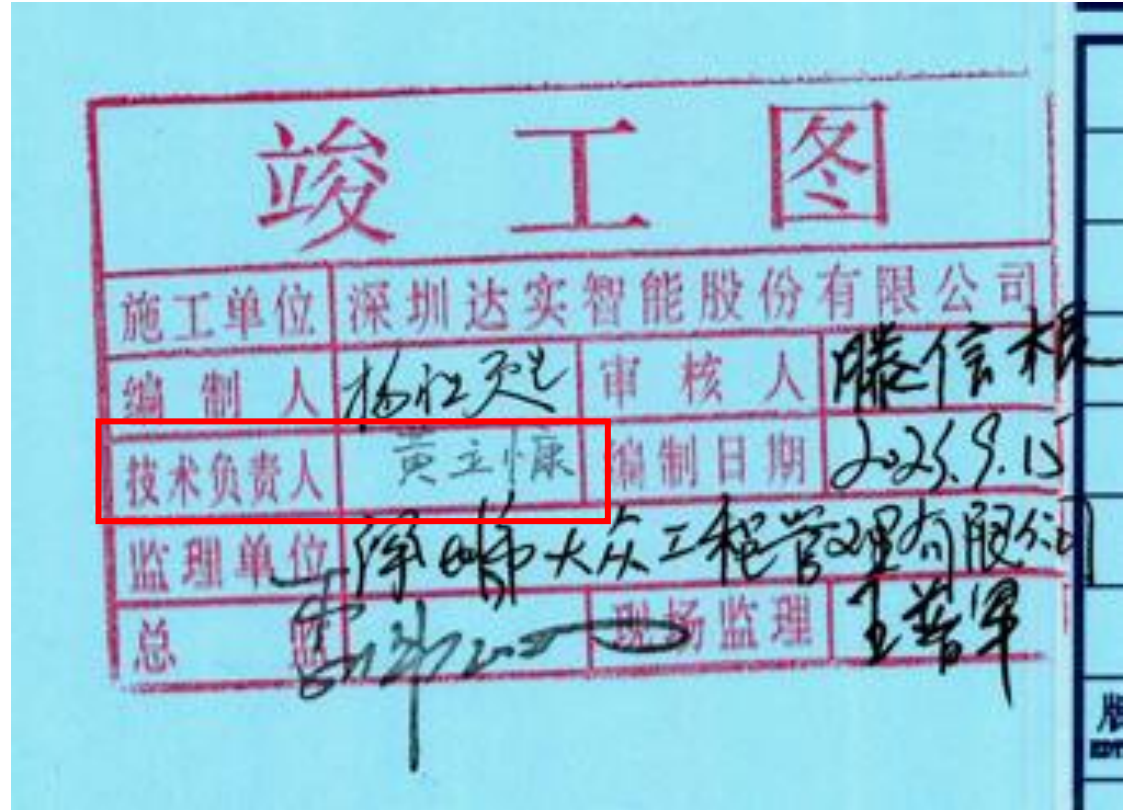 竣工图
施工单位 深圳达实智能股份有限公司
编制人 审核人 滕信根
技术负责人 黄立慷 编制日期 2025.9.15
监理单位 大众工程管理有限公司
总监 现场监理
版